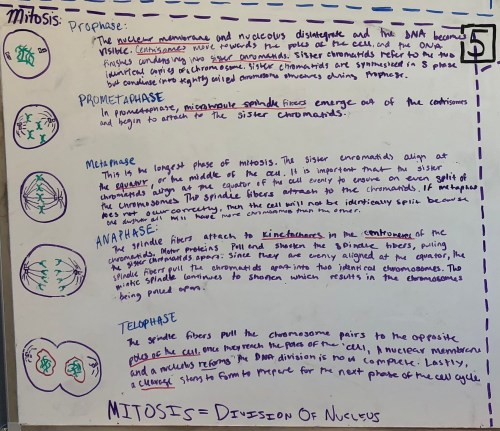 Mitosis:
Prophase:
5
The nuclear membrane and nucleolus disintegrate and the DNA becomes
visible. Centrosomes move towards the poles of the cell, and the DNA
finishes condensing into sister chromatids. Sister chromatids refer to the two
identical copies of chromosome. Sister chromatids are synthesized in S phase
but condense into tightly coiled chromosome structures during Prophase.
PROMETAPHASE
In prometaphase, microtubule spindle fibers emerge out of the centrosomes
and begin to attach to the sister chromatids.
Metaphase
This is the longest phase of mitosis. The sister chromatids align at
the equator, or the middle of the cell. It is important that the sister
chromatids align at the equator of the cell evenly to ensure an even split of
the chromosomes. The spindle fibers attach to the chromatids. If metaphase
does not occur correctly, then the cell will not be identically split because
one will have more chromosomes than the other.
ANAPHASE:
The spindle fibers attach to kinetochores in the centromeres of the
chromatids. Motor proteins Pull and shorten the spindle fibers, pulling
the sister chromatids apart. Since they are evenly aligned at the equator, the
spindle fibers pull the chromatids apart into two identical chromosomes. The
mitotic spindle continues to shorten which results in the chromosomes
being pulled apart.
TELOPHASE
The spindle fibers pull the chromosome pairs to the opposite
poles of the cell, once they reach the poles of the cell, a nuclear membrane
and a nucleolus reforms. The DNA division is now complete. Lastly,
a cleavage starts to form to prepare for the next phase of the cell cycle
MITOSIS = DIVISION OF NUCLEUS